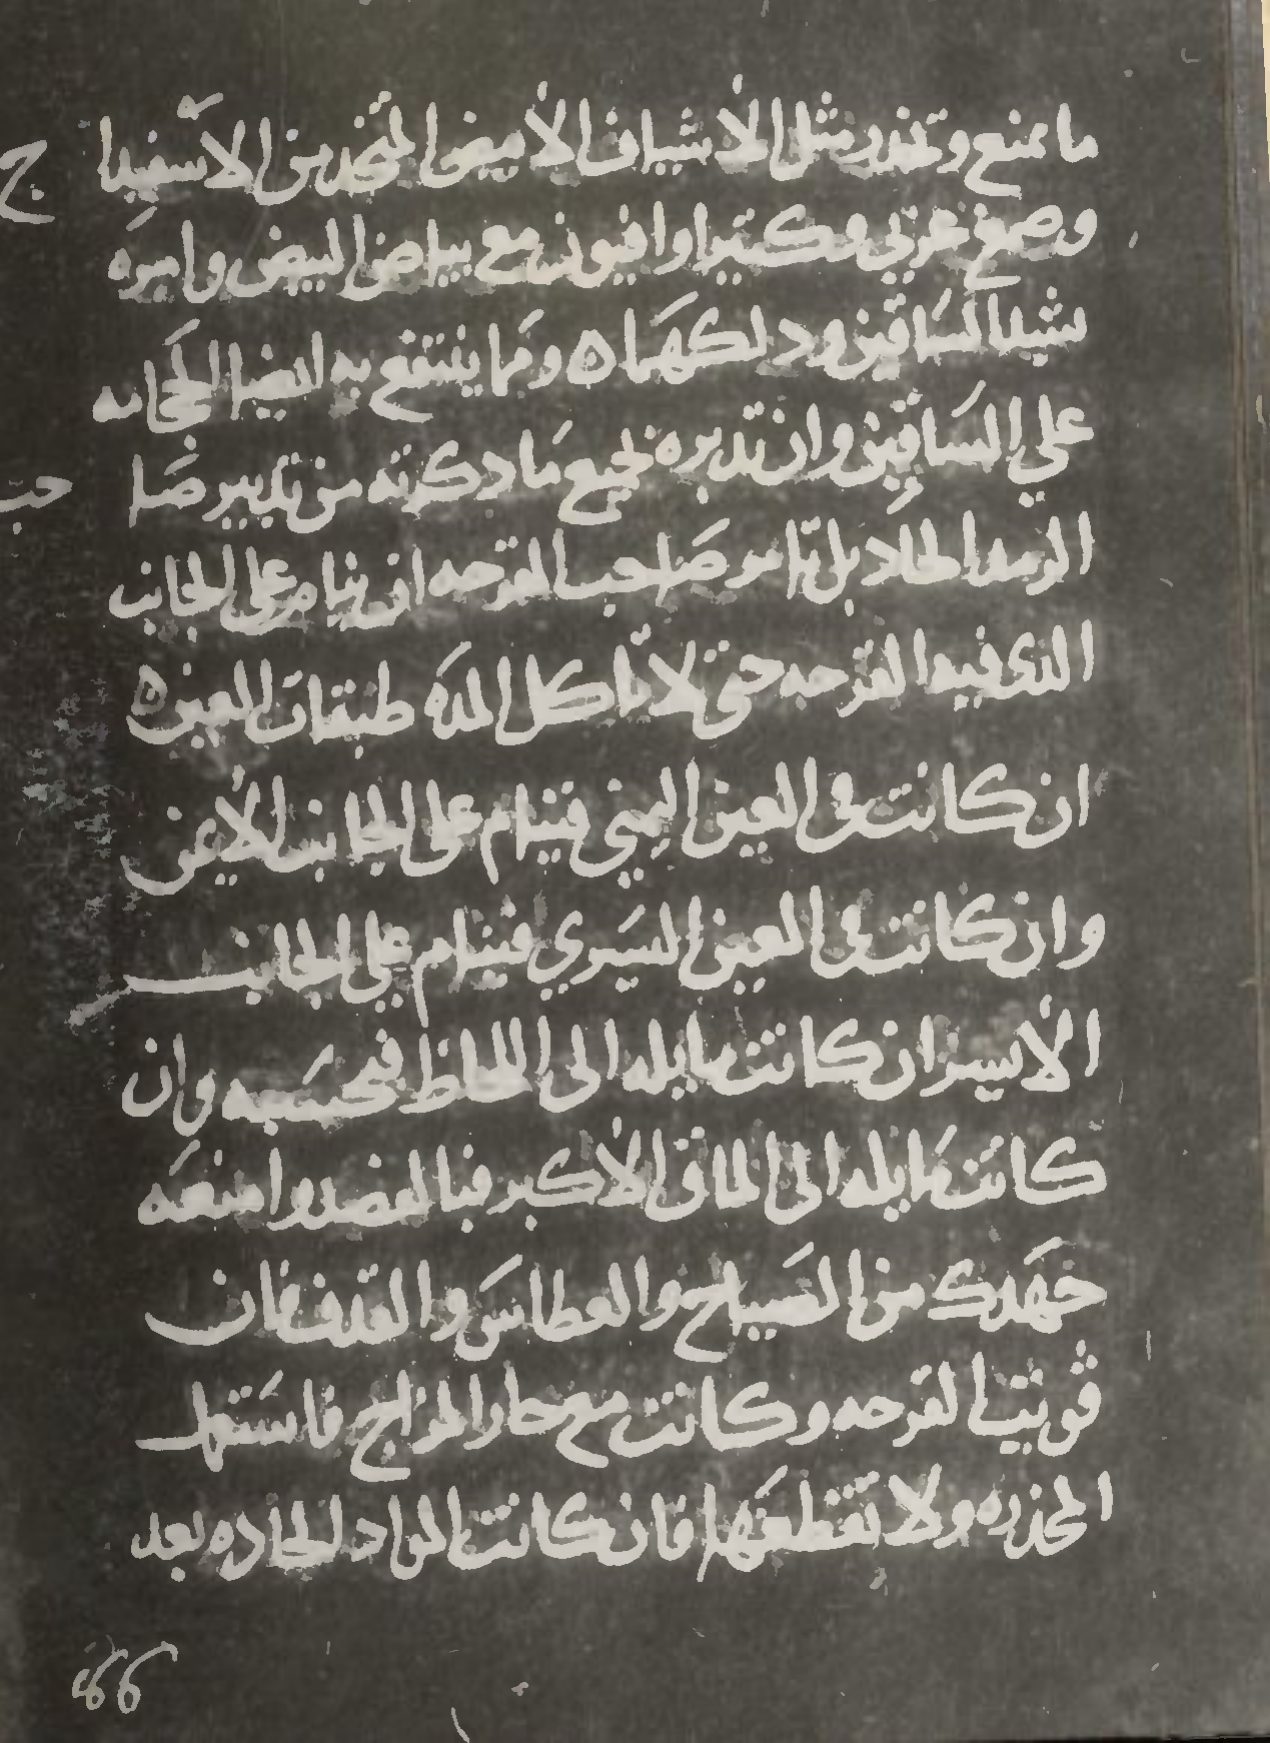 ما يمنع ويخدر مثل الأشياف الأبيض المتخد من الاسفيدا ج
وصمغ عربي وكتيرا وافيون مع بياض البيض وامره
بشد الساقين ودلكهما ه ومما ينتفع به ايضا الحجامه
علي الساقين وان تدبره بجميع ما دكرته من تدبير صا حب
الرمد الحاد بل تامر صاحب القرحه ان ينام على الجانب
الذى فيه القرحه حتى لا تاكل المده طبقات العين ه
ان كانت فى العين اليمني فينام على الجانب الأيمن
وان كانت فى العين اليسري فينام علي الجانب
الأيسر ان كانت مايله الى اللحاظ فبحسبه وان
كانت مايله الى الماق الأكبر فبالضد وامنعه
جهدك من الصياح والعطاس والقدف فان
قويت القرحه وكانت مع حار المزاج فاستعمل
المخدره ولا تقطعها فان كانت المواد الحاده بعد
66